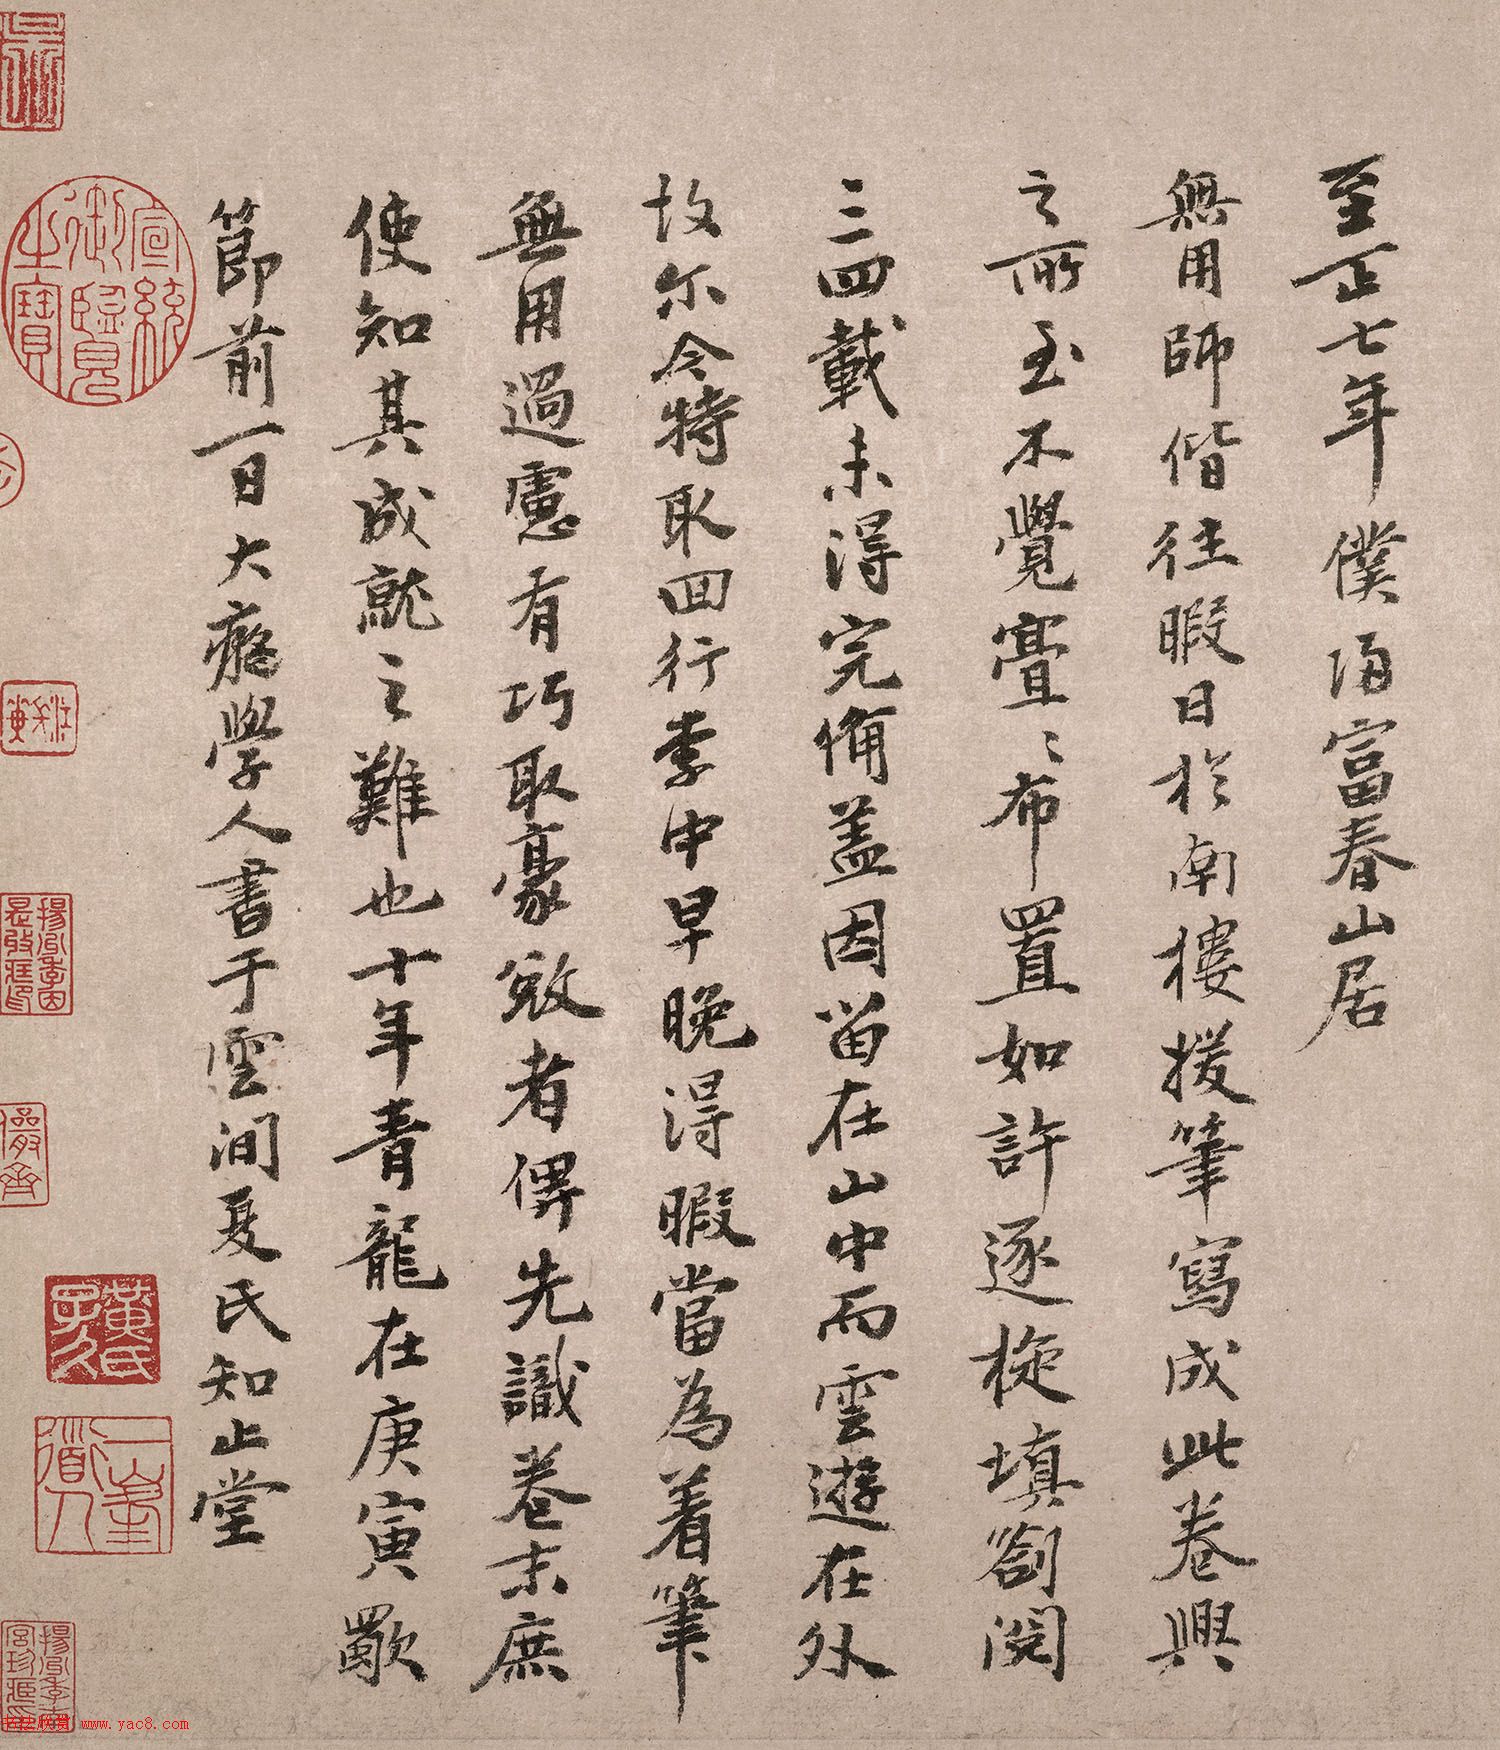 至正七年僕歸富春山居
無用師偕往暇日於南樓援筆寫成此卷興
之所至不覺亹〻布置如許逐旋填劄閱
三四載未得完備盖因留在山中而雲遊在外
故尔今特取回行李中早晚得暇當為着筆
無用過慮有巧取豪敚者俾先識卷末庶
使知其成就之難也十年青龍在庚寅歜
節前一日大癡學人書于雲間夏氏知止堂
宣統御覽之寶
儼齋
黃氏子久
一峯道人
www.yac8.com